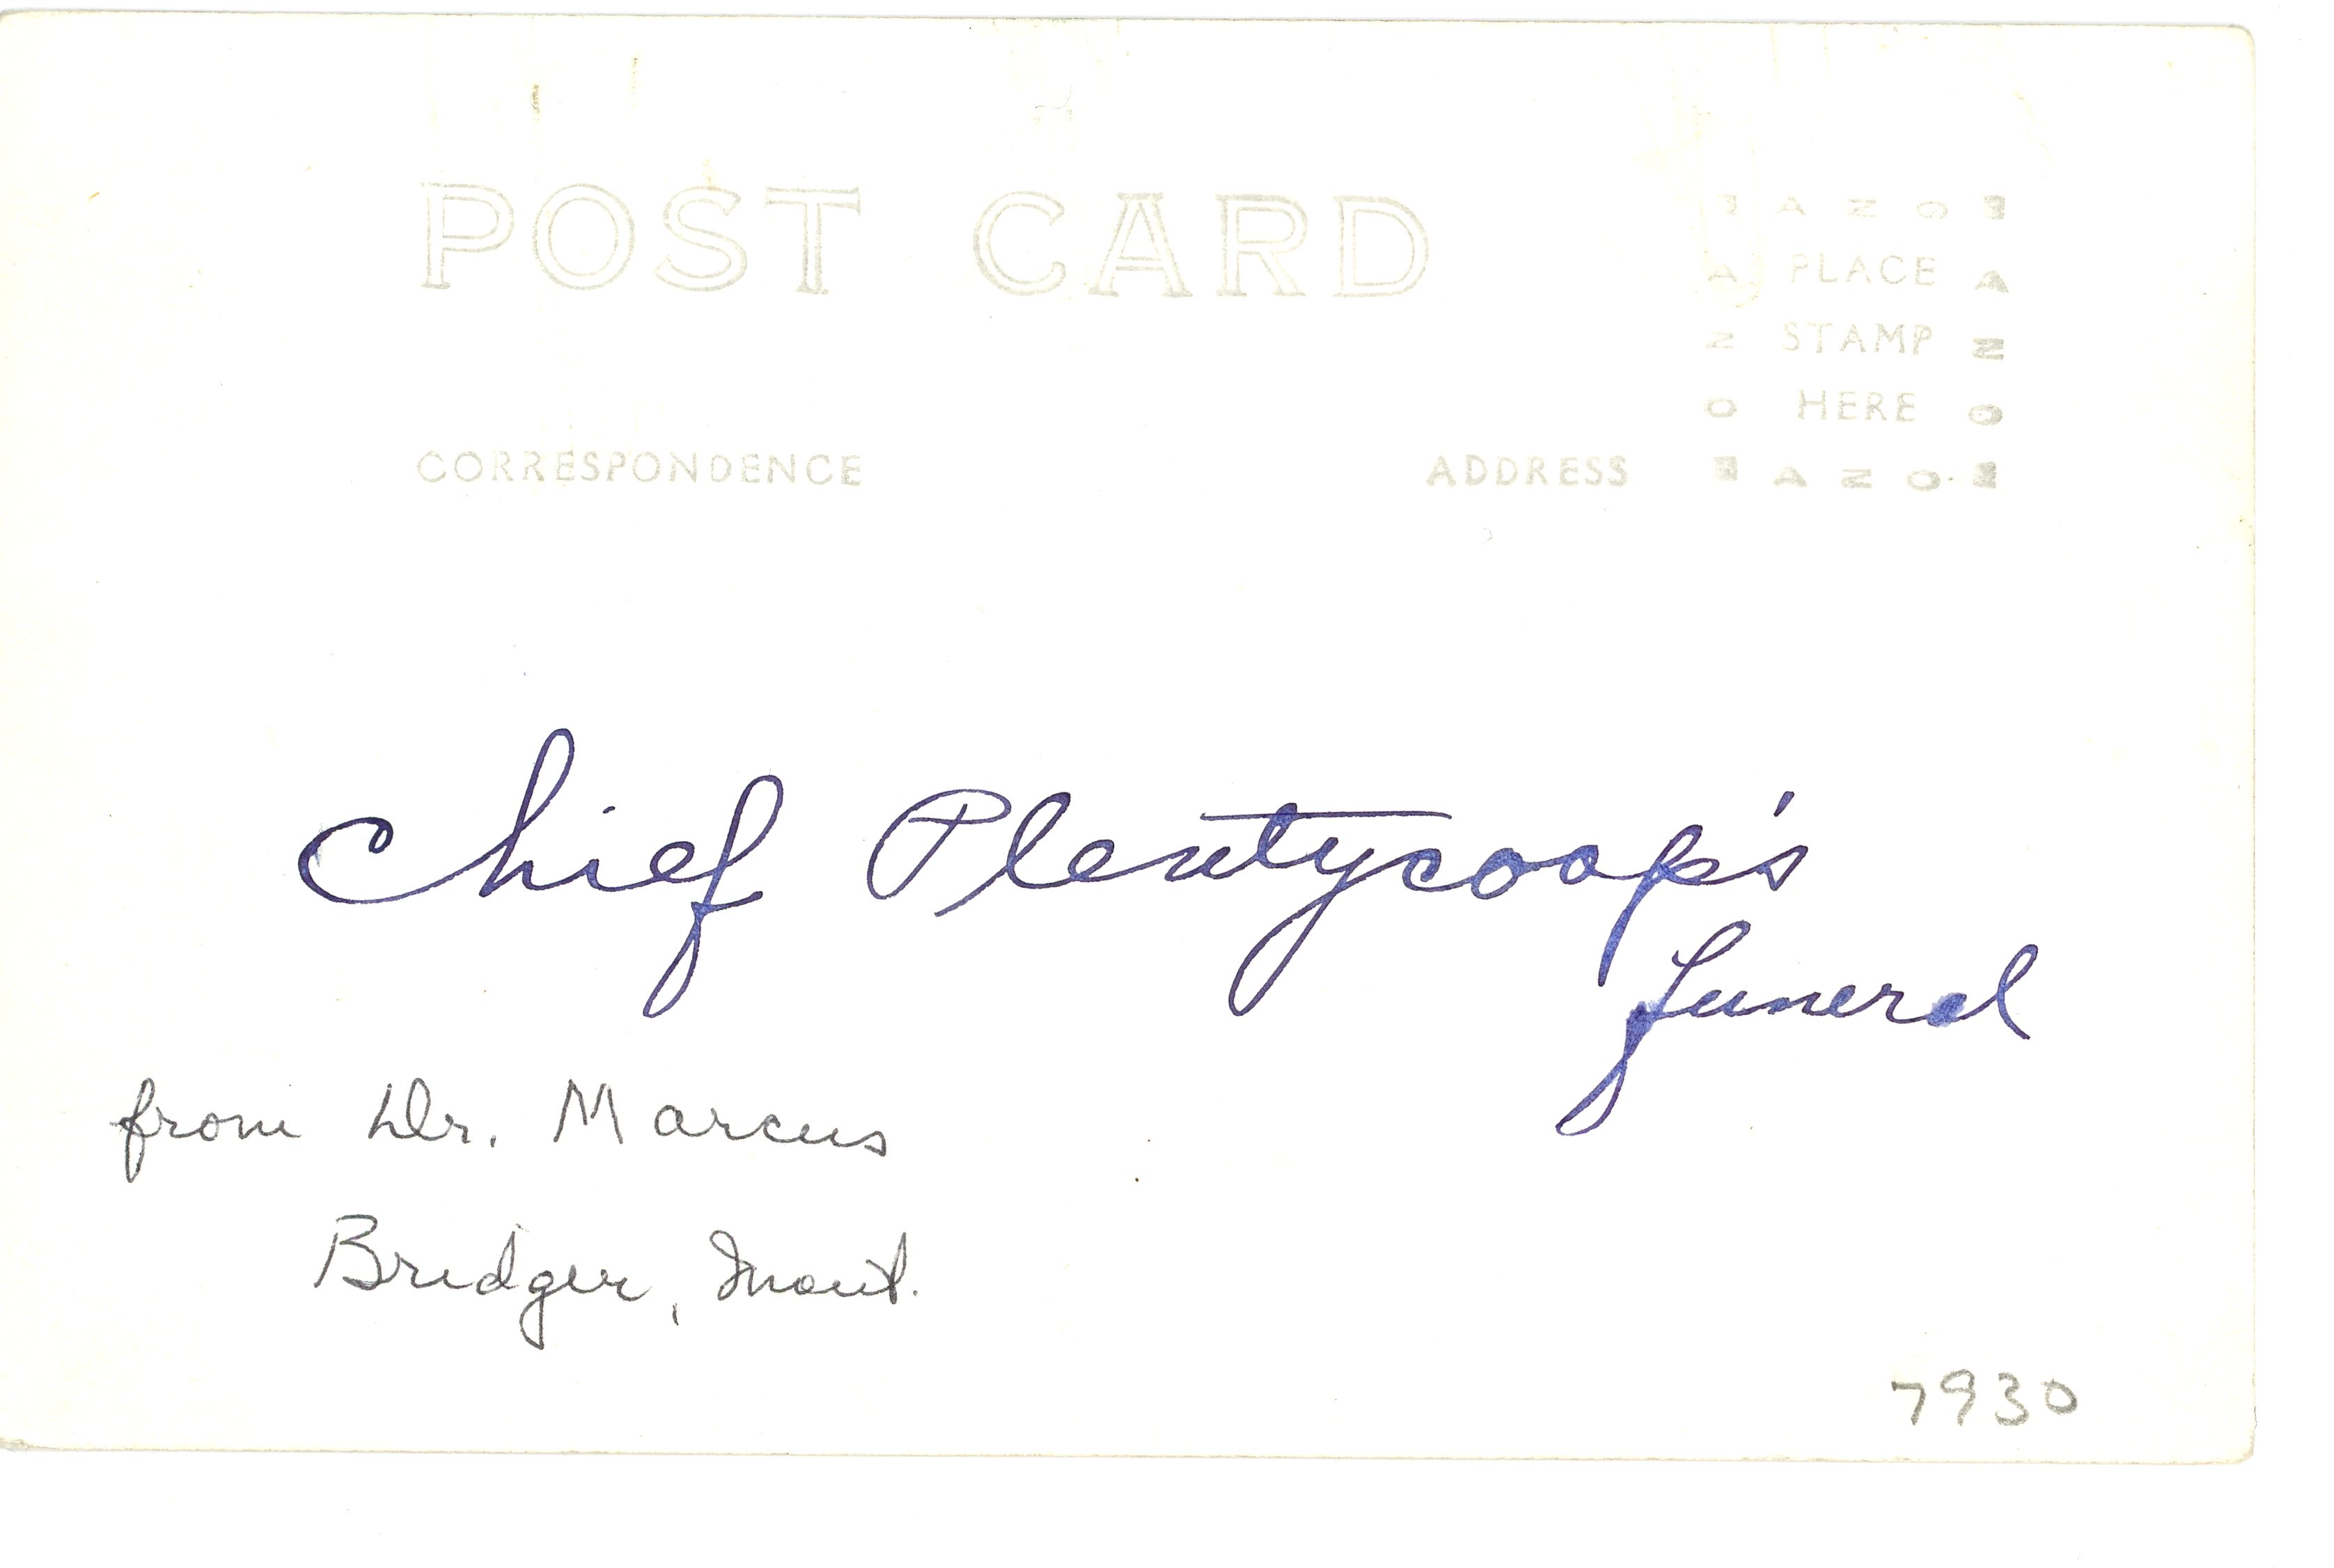 POST CARD
AZO
A PLACE A
Z STAMP Z
O HERE O
CORRESPONDENCE ADDRESS
AZO
Chief Plentycoop's
funeral
from Dr. Marcus
Bridger, Mont.
7930